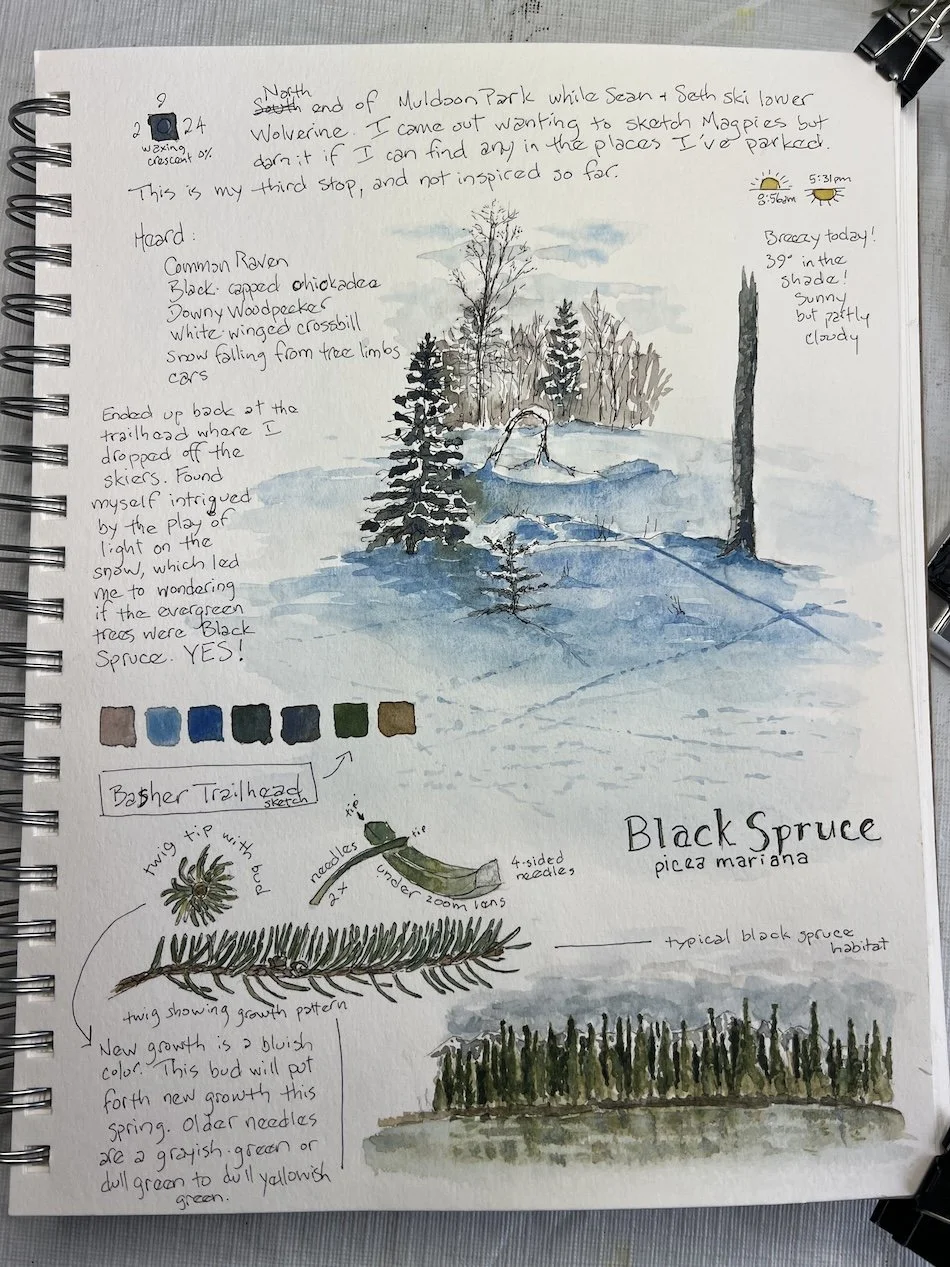 9
2 24
waxing
crescent 0%
North
South end of Muldoon Park while Sean + Seth ski lower
Wolverine. I came out wanting to sketch Magpies but
darn it if I can find any in the places I've parked.
This is my third stop, and not inspired so far.
8:56am 5:31pm
Breezy today!
39° in the
shade!
Sunny
but partly
cloudy
Heard:
Common Raven
Black-capped chickadee
Downy Woodpecker
White-winged crossbill
snow falling from tree limbs
cars
Ended up back at the
trailhead where I
dropped off the
skiers. Found
myself intrigued
by the play of
light on the
snow, which led
me to wondering
if the evergreen
trees were Black
Spruce. YES!
Basher Trailhead
sketch
Black Spruce
picea mariana
twig tip with bud
needles
2x
tip
tip
under zoom lens
4-sided
needles
typical black spruce
habitat
twig showing growth pattern
New growth is a bluish
color. This bud will put
forth new growth this
spring. Older needles
are a grayish-green or
dull green to dull yellowish
green.